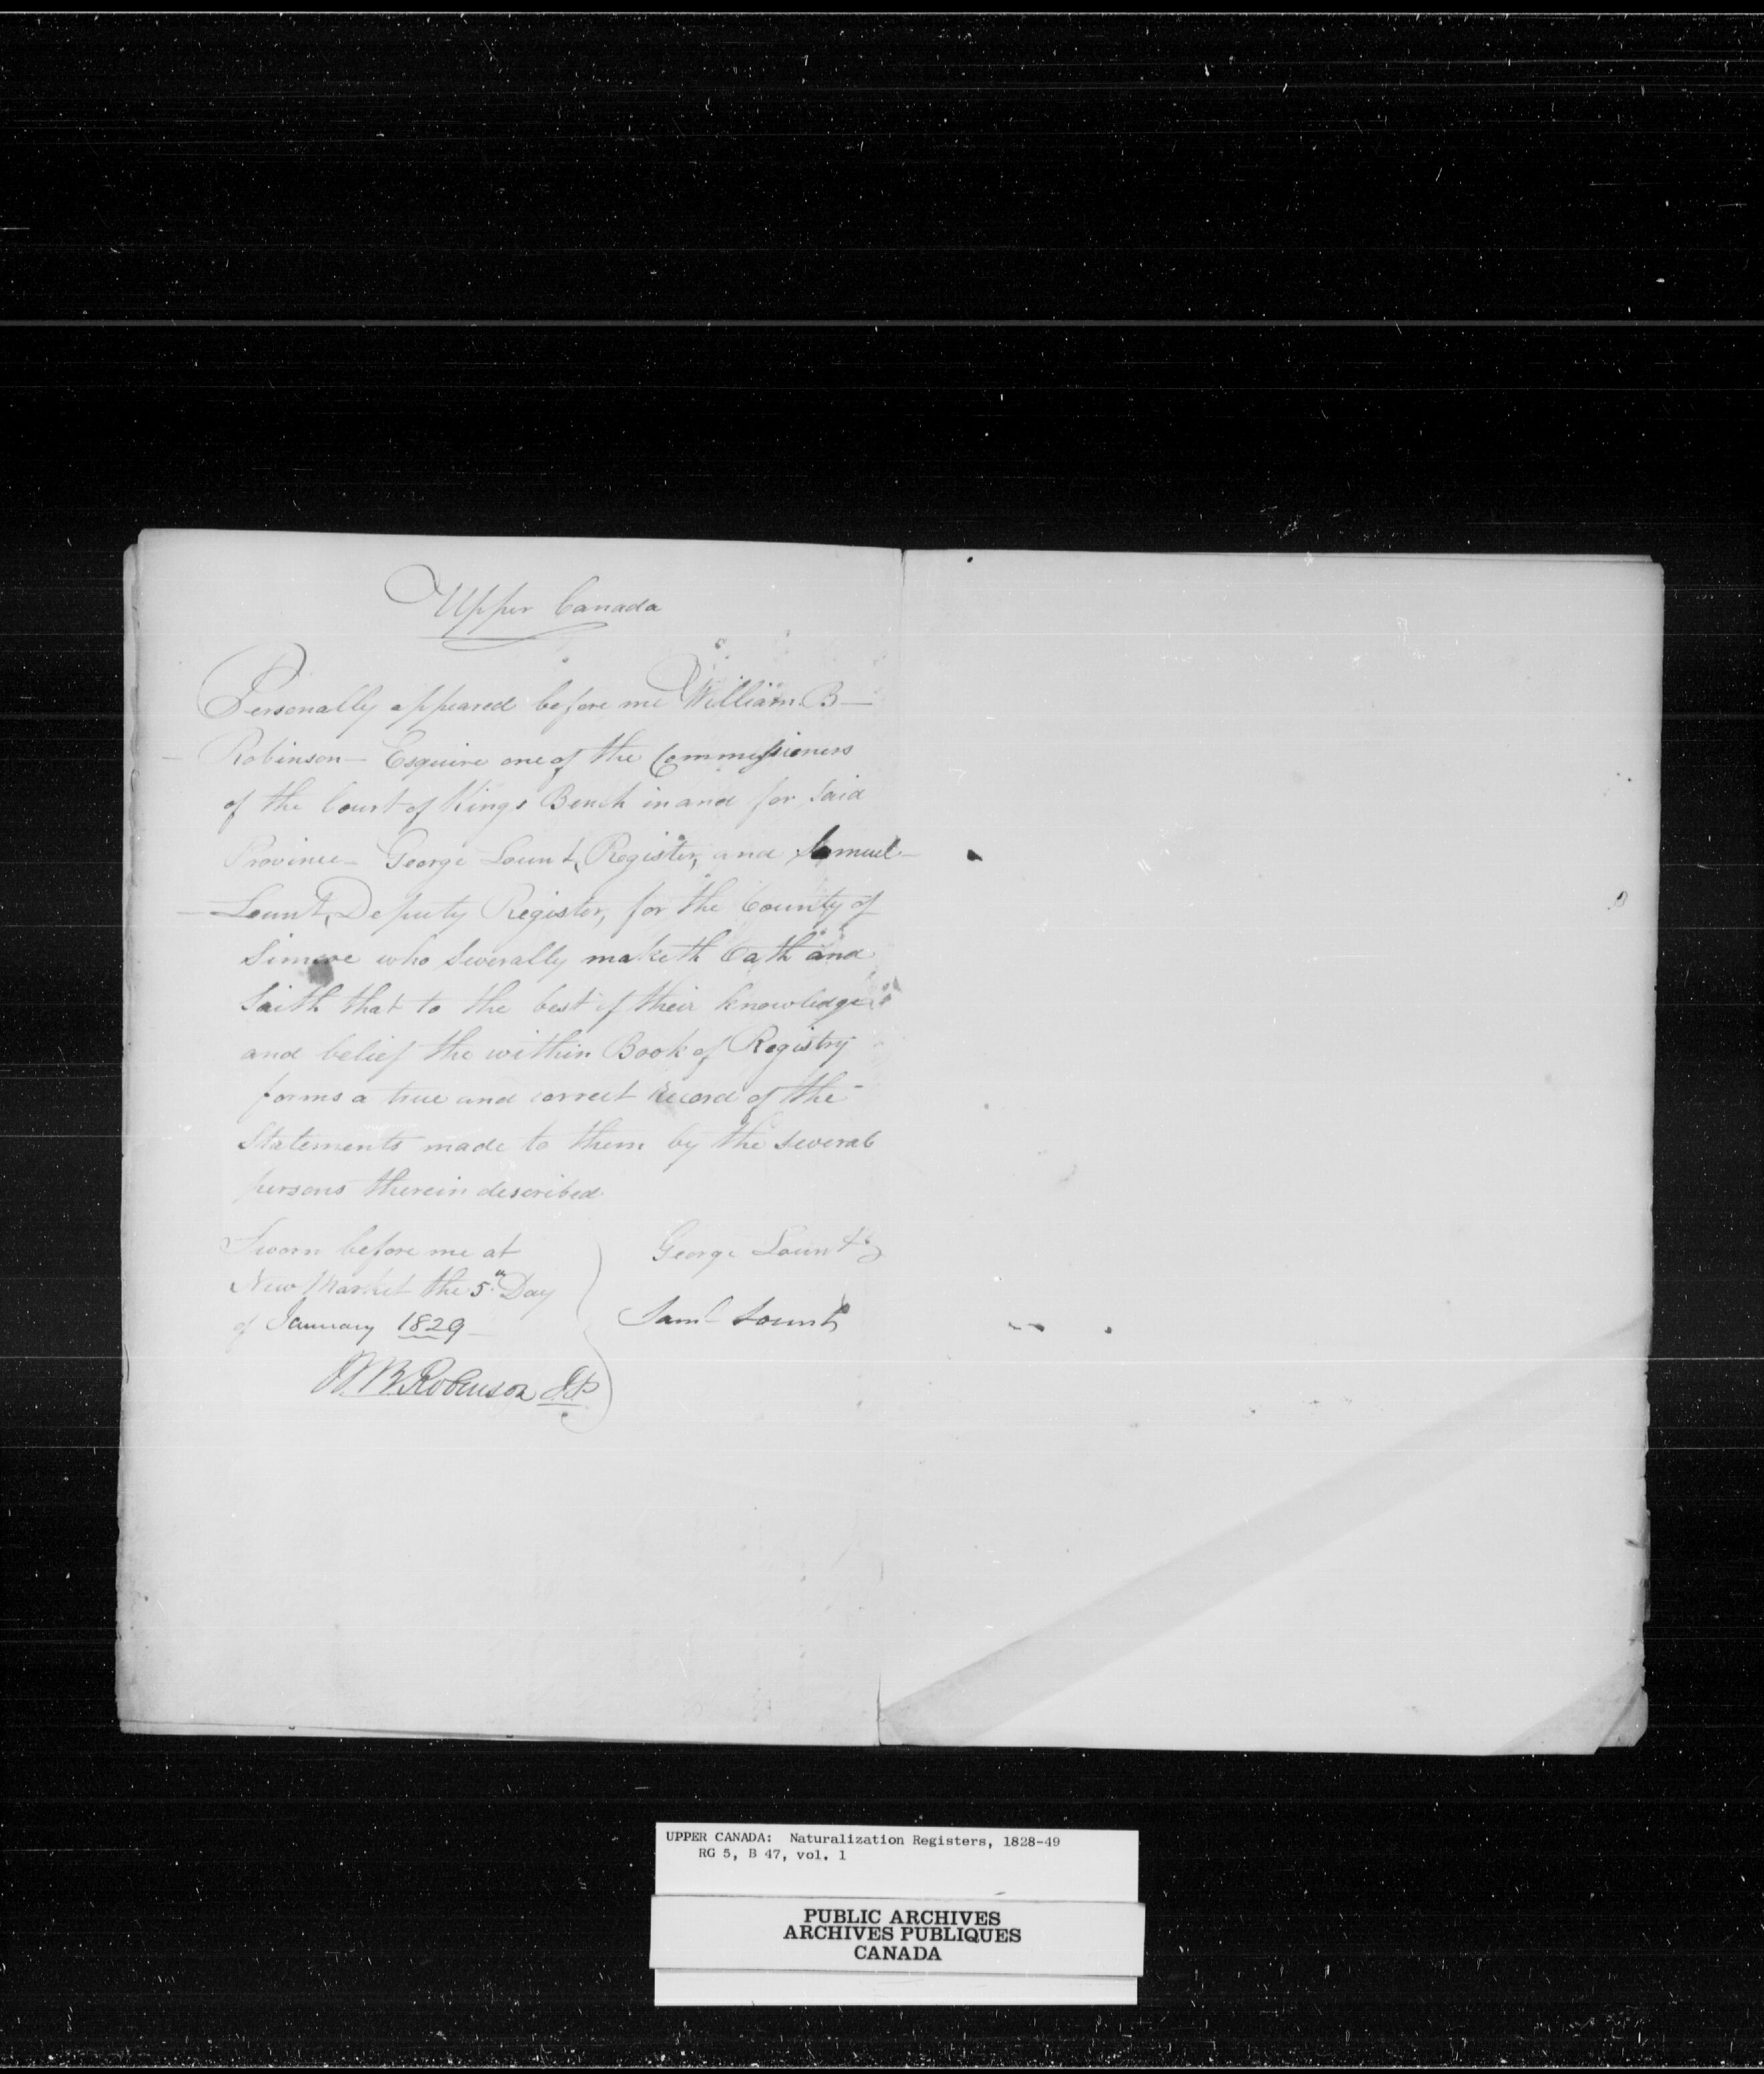 Upper Canada
Personally appeared before me William B —
Robinson — Esquire one of the Commissioners
of the Court of Kings Bench in and for said
Province — George Lount, Register, and Samuel —
— Lount, Deputy Register, for the County of
Simcoe who severally maketh Oath and
saith that to the best of their knowledge
and belief the within Book of Registry
forms a true and correct Record of the
Statements made to them by the several
persons therein described.
Sworn before me at
New Market the 5th Day
of January 1829 —
W. B. Robinson J.P.
George Lount
Saml Lount
UPPER CANADA: Naturalization Registers, 1828-49
RG 5, B 47, vol. 1
PUBLIC ARCHIVES
ARCHIVES PUBLIQUES
CANADA